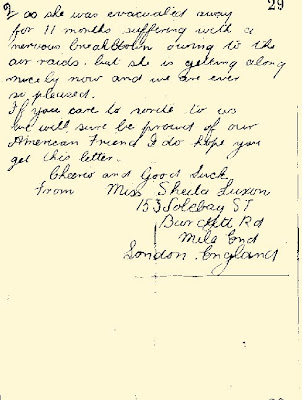 29
2 as she was evacuated away
for 11 months suffering with a
nervous breakdown owing to the
air raids. but she is getting along
nicely now and we are ever
so pleased.
If you care to write to us
we will sure be proud of our
American Friend I do hope you
get this letter.
Cheerio and Good Luck
From Miss Sheila Luxon
153 Solebay ST
Burdett Rd
Mile End
London. England